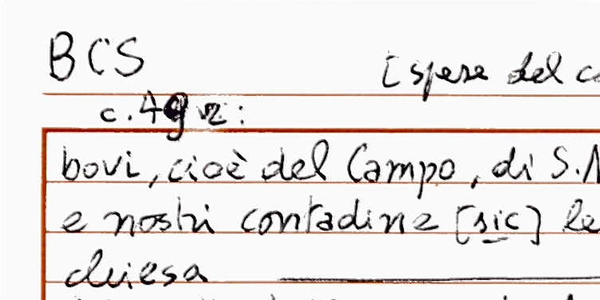 BCS
[spese del
c. 49 r:
bovi, cioè del Campo, di S.
e nostri contadine [sic] le
chiesa